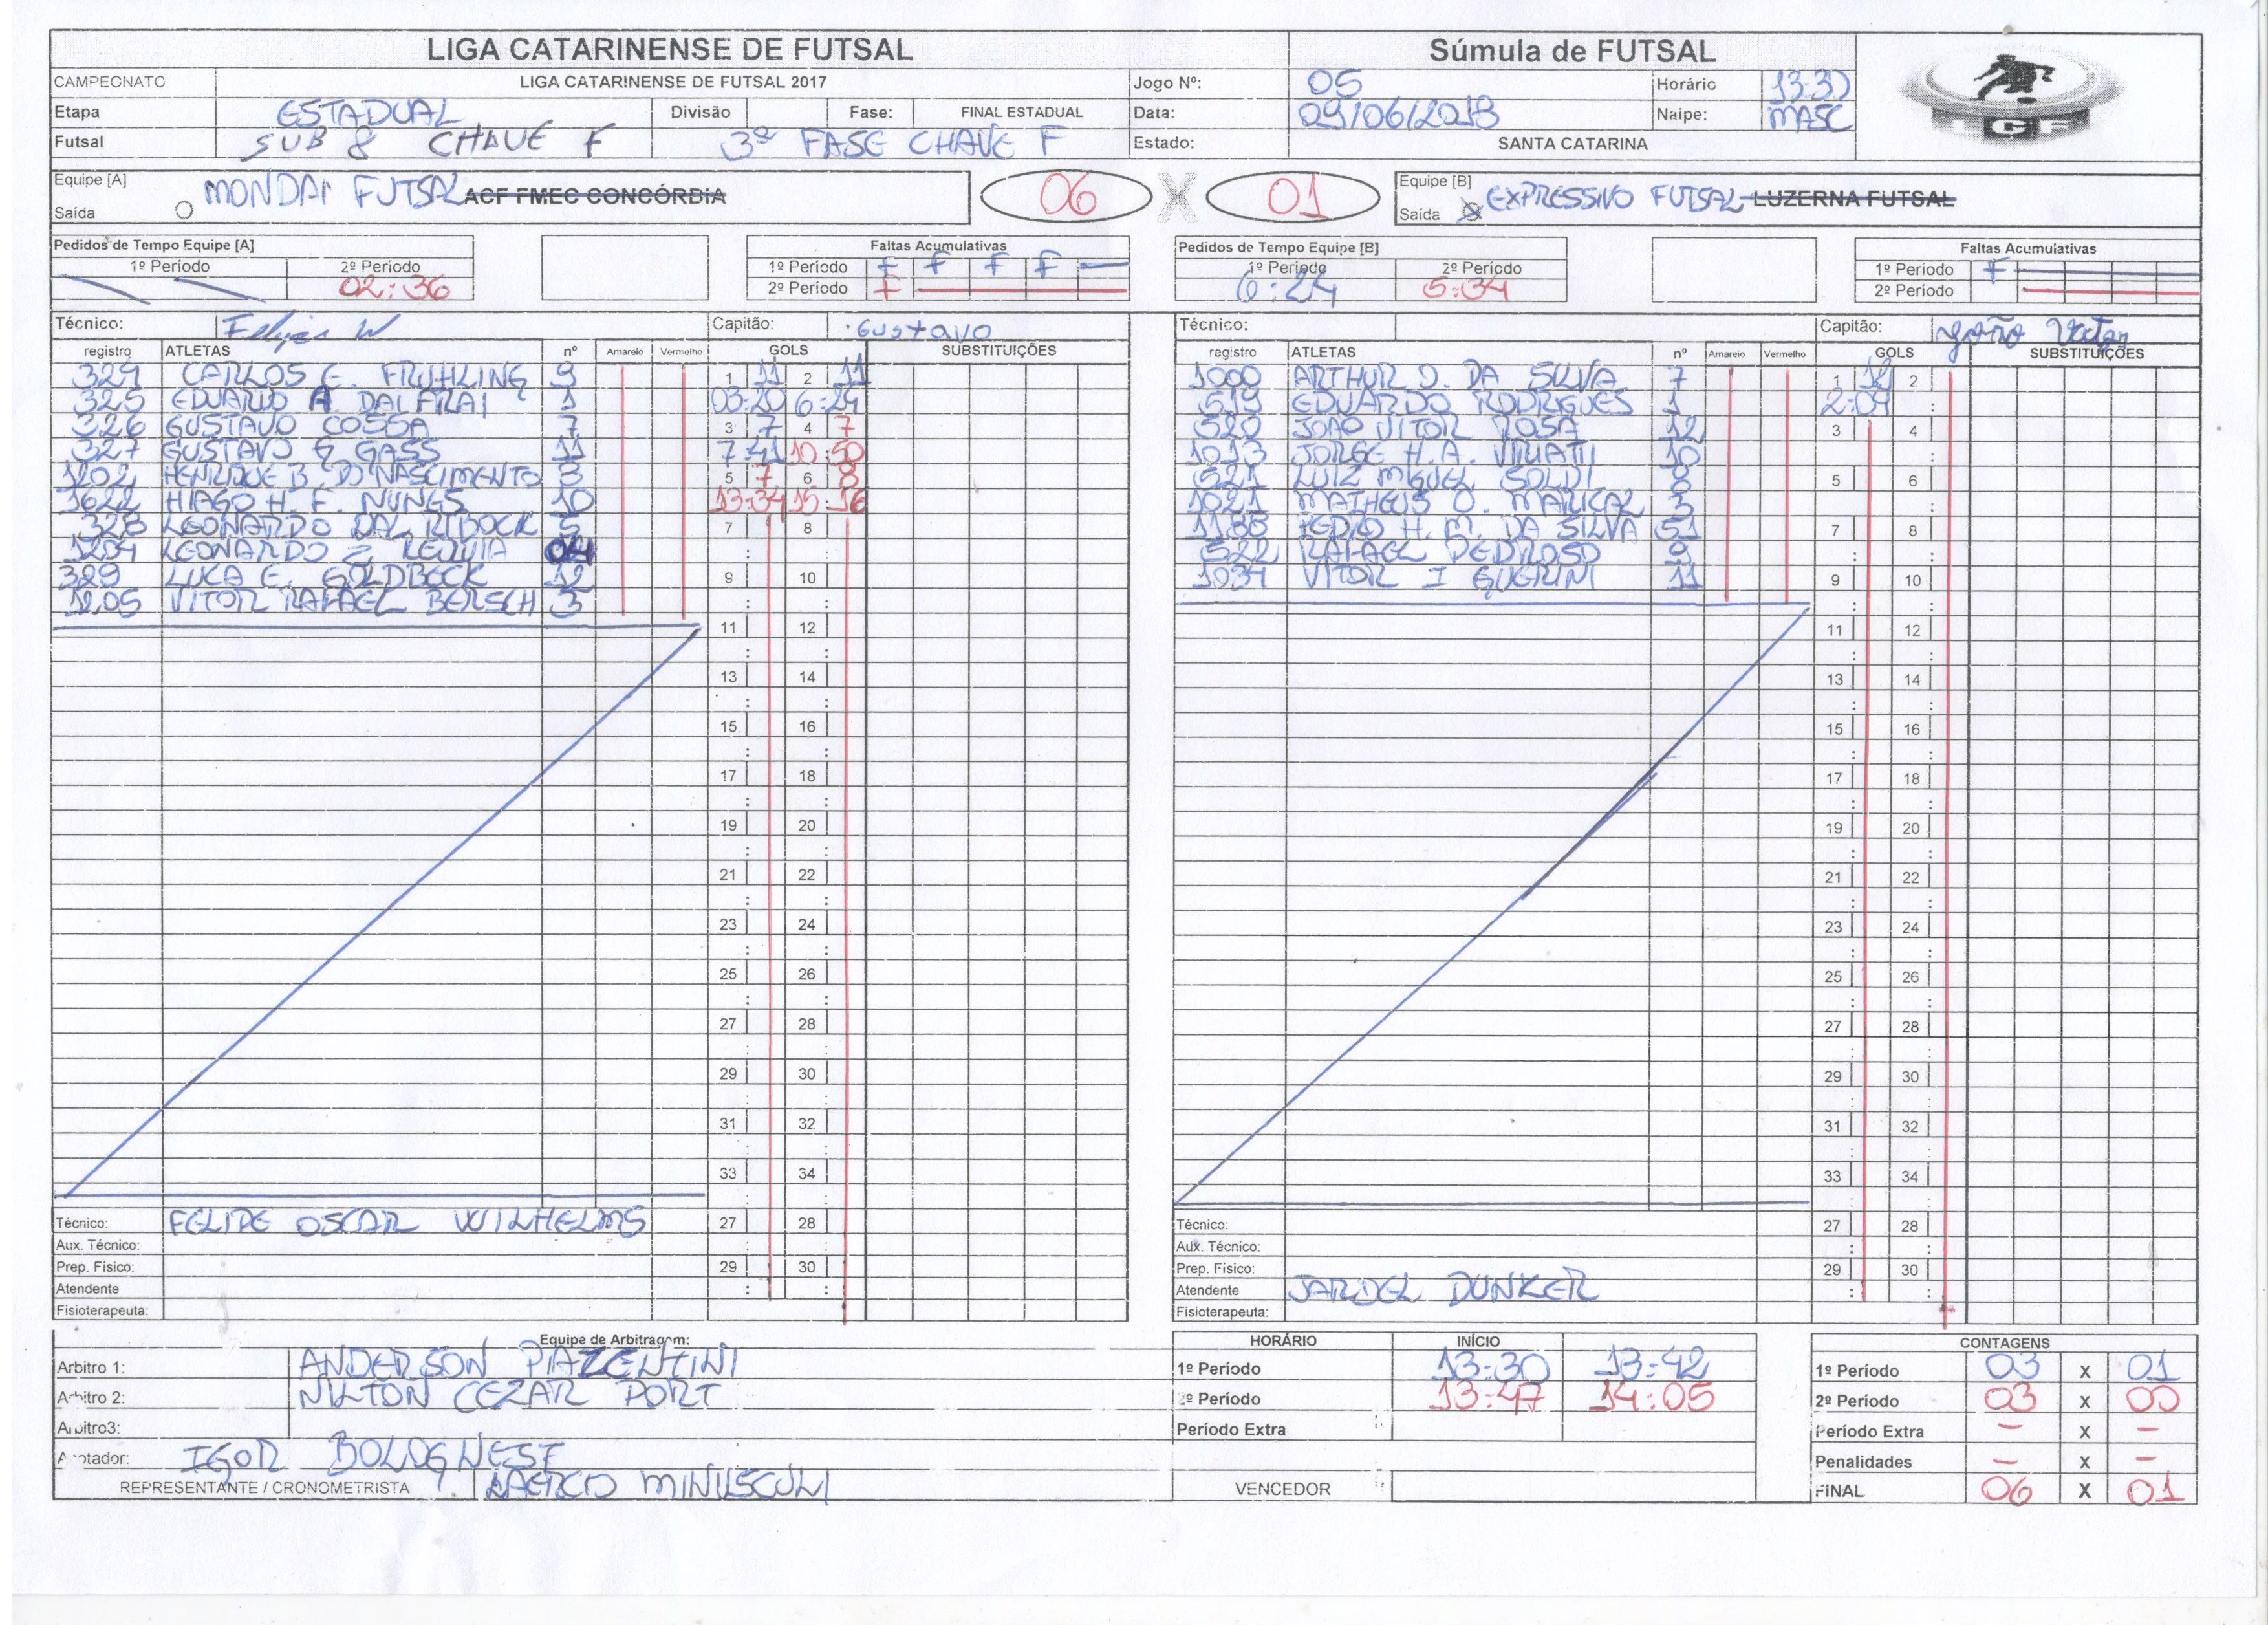 LIGA CATARINENSE DE FUTSAL Súmula de FUTSAL
CAMPEONATO LIGA CATARINENSE DE FUTSAL 2017 Jogo Nº: 05 Horário 13:30
Etapa ESTADUAL Divisão Fase: FINAL ESTADUAL Data: 09/06/2018 Naipe: MASC
Futsal SUB 8 CHAVE F 3ª FASE CHAVE F Estado: SANTA CATARINA
LGF
Equipe [A] MONDAI FUTSAL ACF FMEC CONCÓRDIA 06 X 01 Equipe [B] EXPRESSIVO FUTSAL LUZERNA FUTSAL
Saída Saída
Pedidos de Tempo Equipe [A] Faltas Acumulativas Pedidos de Tempo Equipe [B] Faltas Acumulativas
1º Período 2º Período 1º Período F F F F 1º Período 2º Período 1º Período F
02:36 2º Período F 6:24 5:34 2º Período
Técnico: Felipe W Capitão: Gustavo Técnico: Capitão: João Victor
registro ATLETAS nº Amarelo Vermelho GOLS SUBSTITUIÇÕES registro ATLETAS nº Amarelo Vermelho GOLS SUBSTITUIÇÕES
324 CARLOS E. FRUHLING 9 1 11 2 11 1000 ARTHUR J. DA SILVA 7 1 12 2
325 EDUARDO A DAI PRAI 1 03:20 6:29 519 EDUARDO RODRIGUES 1 2:09 :
326 GUSTAVO COSSA 7 3 7 4 7 520 JOÃO VITOR ROSA 12 3 4
327 GUSTAVO G GASS 11 7:41 10:50 1013 JORGE H.A. 10
1202 HENRIQUE B. DO NASCIMENTO 8 5 7 6 8 521 LUIZ MIGUEL SOLDI 8 5 6
1622 HIAGO H. F. NUNES 10 13:34 15:16 1021 MATHEUS O. 3
328 LEONARDO DAL RIBOCK 5 7 8 1188 PEDRO H. M. DA SILVA 51 7 8
1204 LEONARDO Z 04 : : 522 RAFAEL PEDROSO 9 : :
389 LUCA E. GOLDBECK 12 9 10 1034 VITOR I GUERINI 11 9 10
1205 VITOR RAFAEL BERSCH 3 : : : :
11 12 11 12
: : : :
13 14 13 14
: : : :
15 16 15 16
: : : :
17 18 17 18
: : : :
19 20 19 20
: : : :
21 22 21 22
: : : :
23 24 23 24
: : : :
25 26 25 26
: : : :
27 28 27 28
: : : :
29 30 29 30
: : : :
31 32 31 32
: : : :
33 34 33 34
: : : :
Técnico: FELIPE OSCAR WILHELMS 27 28 Técnico: 27 28
Aux. Técnico: Aux. Técnico: : :
Prep. Físico: 29 30 Prep. Físico: 29 30
Atendente : : Atendente JARDEL DUNKER : :
Fisioterapeuta: Fisioterapeuta:
Equipe de Arbitragem: HORÁRIO INÍCIO CONTAGENS
Arbitro 1: ANDERSON PIAZENTINI 1º Período 13:30 13:42 1º Período 03 X 01
Arbitro 2: NILTON CEZAR PORT 2º Período 13:47 14:05 2º Período 03 X 00
Arbitro3: Período Extra Período Extra – X –
Anotador: IGOR BOLOGNESE Penalidades – X –
REPRESENTANTE / CRONOMETRISTA LAERCIO MINUSCULI VENCEDOR FINAL 06 X 01